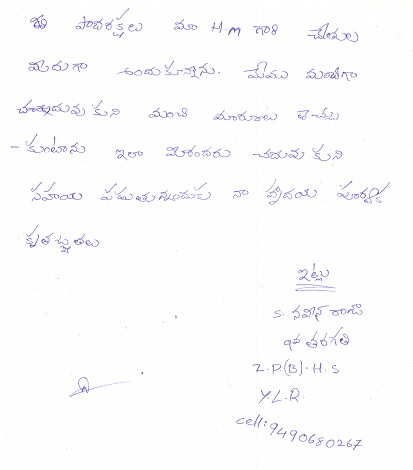 ఈ పాదరక్షలు మా H.M గారి చేతుల
మీదుగా అందుకున్నాను. మేము మంచిగా
చదువుకుని మంచి మార్కులు తెచ్చు
- కుంటాను ఇలా మీరందరు చదువుకుని
సహాయ పడుతున్నందుకు నా హృదయ పూర్వక
కృతజ్ఞతలు
ఇట్లు
S. నవీన్ రాజ్
తరగతి
Z.P.(B).H.S
Y.L.R.
cell: 9490680267